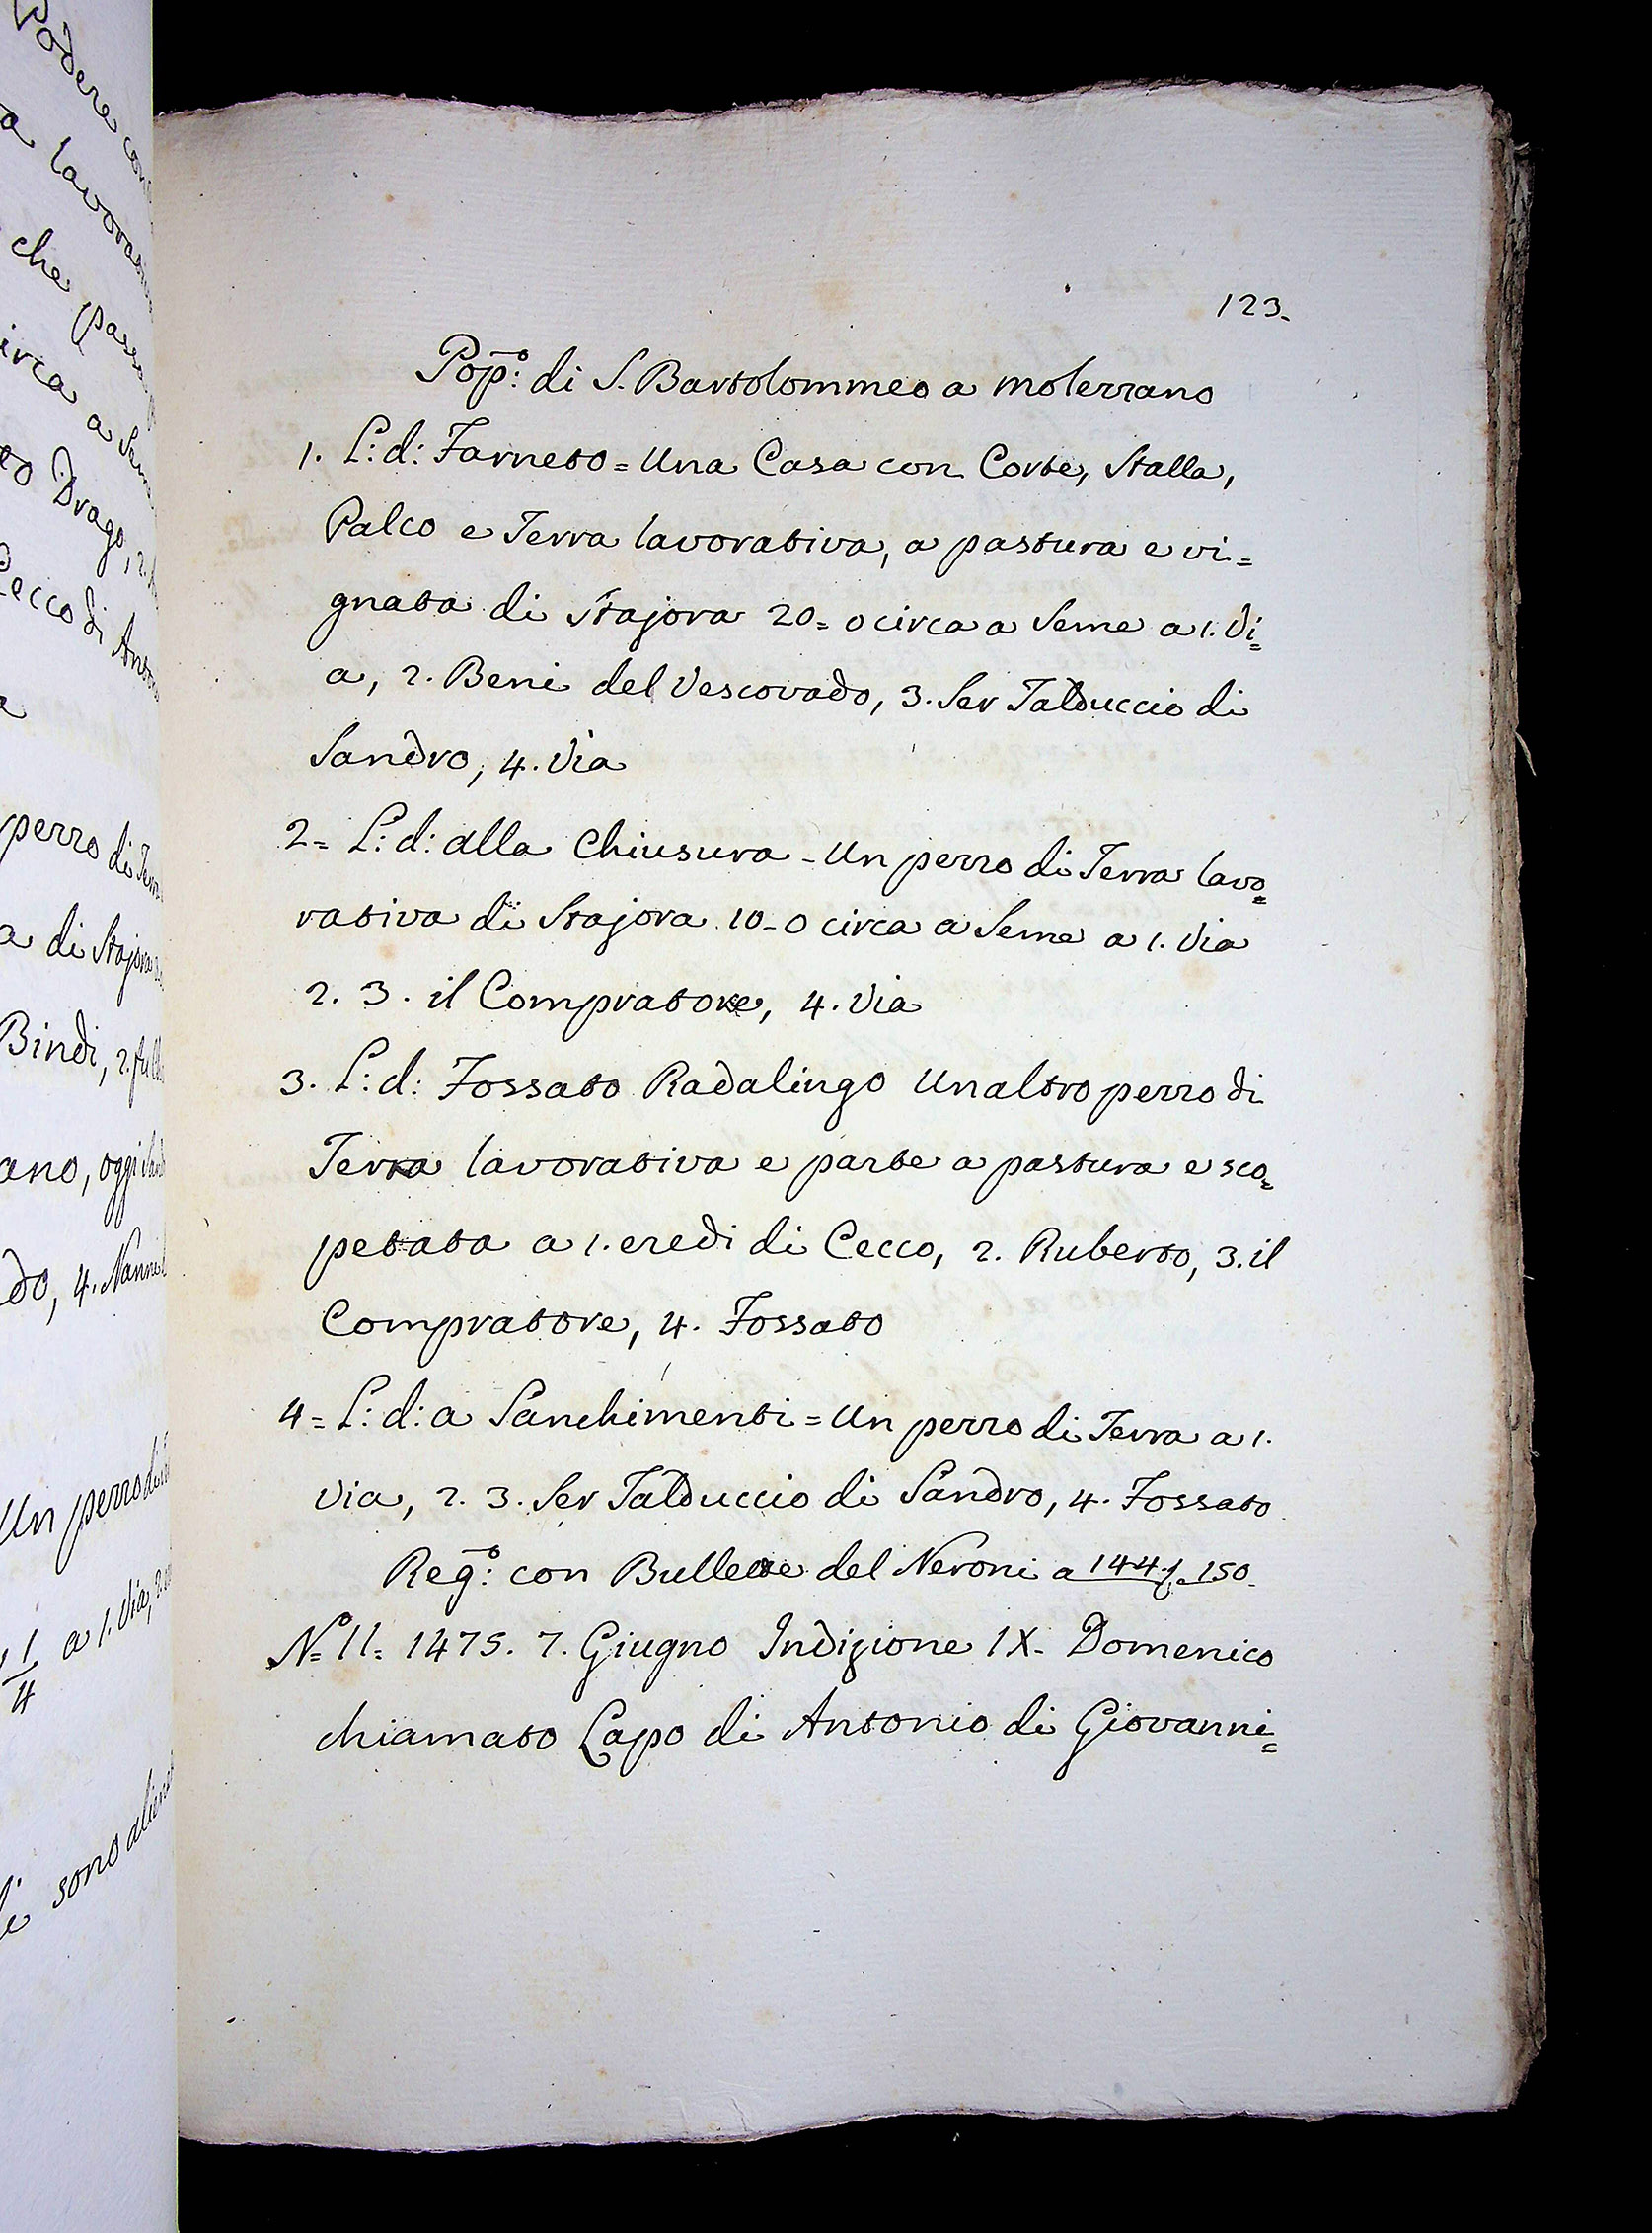 123.
Pop.º: di S. Bartolommeo a Molezzano
1. L: d: Farneto = Una Casa con Corte, Stalla,
Palco e Terra lavorativa, a pastura e vi=
gnata di Stajora 20= o circa a Seme a 1. Vi=
a, 2. Beni del Vescovado, 3. Ser Talduccio di
Sandro, 4. Via
2= L: d: alla Chiusura - Un pezzo di Terra lavo=
rativa di Stajora 10- o circa a Seme a 1. Via
2. 3. il Compratore, 4. Via
3. L: d: Fossato Radalingo Unaltro pezzo di
Terra lavorativa e parte a pastura e sco=
petata a 1. eredi di Cecco, 2. Ruberto, 3. il
Compratore, 4. Fossato
4= L: d: a Sanchimenti = Un pezzo di Terra a 1.
Via, 2. 3. Ser Talduccio di Sandro, 4. Fossato
Reg.º: con Bullette del Neroni a 144 150.
Nº 11= 1475. 7. Giugno Indizione IX- Domenico
chiamato Capo di Antonio di Giovanni=
Podere con
a
che
irca a
to Drago, 2.
Cecco di
pezzo di
a di Stajora
Bindi, 2.
ano, oggi
do, 4. Nanni
Un pezzo di
1/4 a 1. Via, 2.
sono